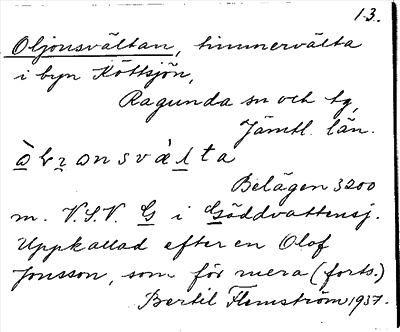 13.
Oljonsvältan, timmervälta
i byn Köttsjön,
Ragunda sn och tg,
Jämtl. län.
Belägen 3200
m. V.S.V. G i Gäddvattensj.
Uppkallad efter en Olof
Jonsson, som för mera (forts.)
Bertil Flemström 1937.